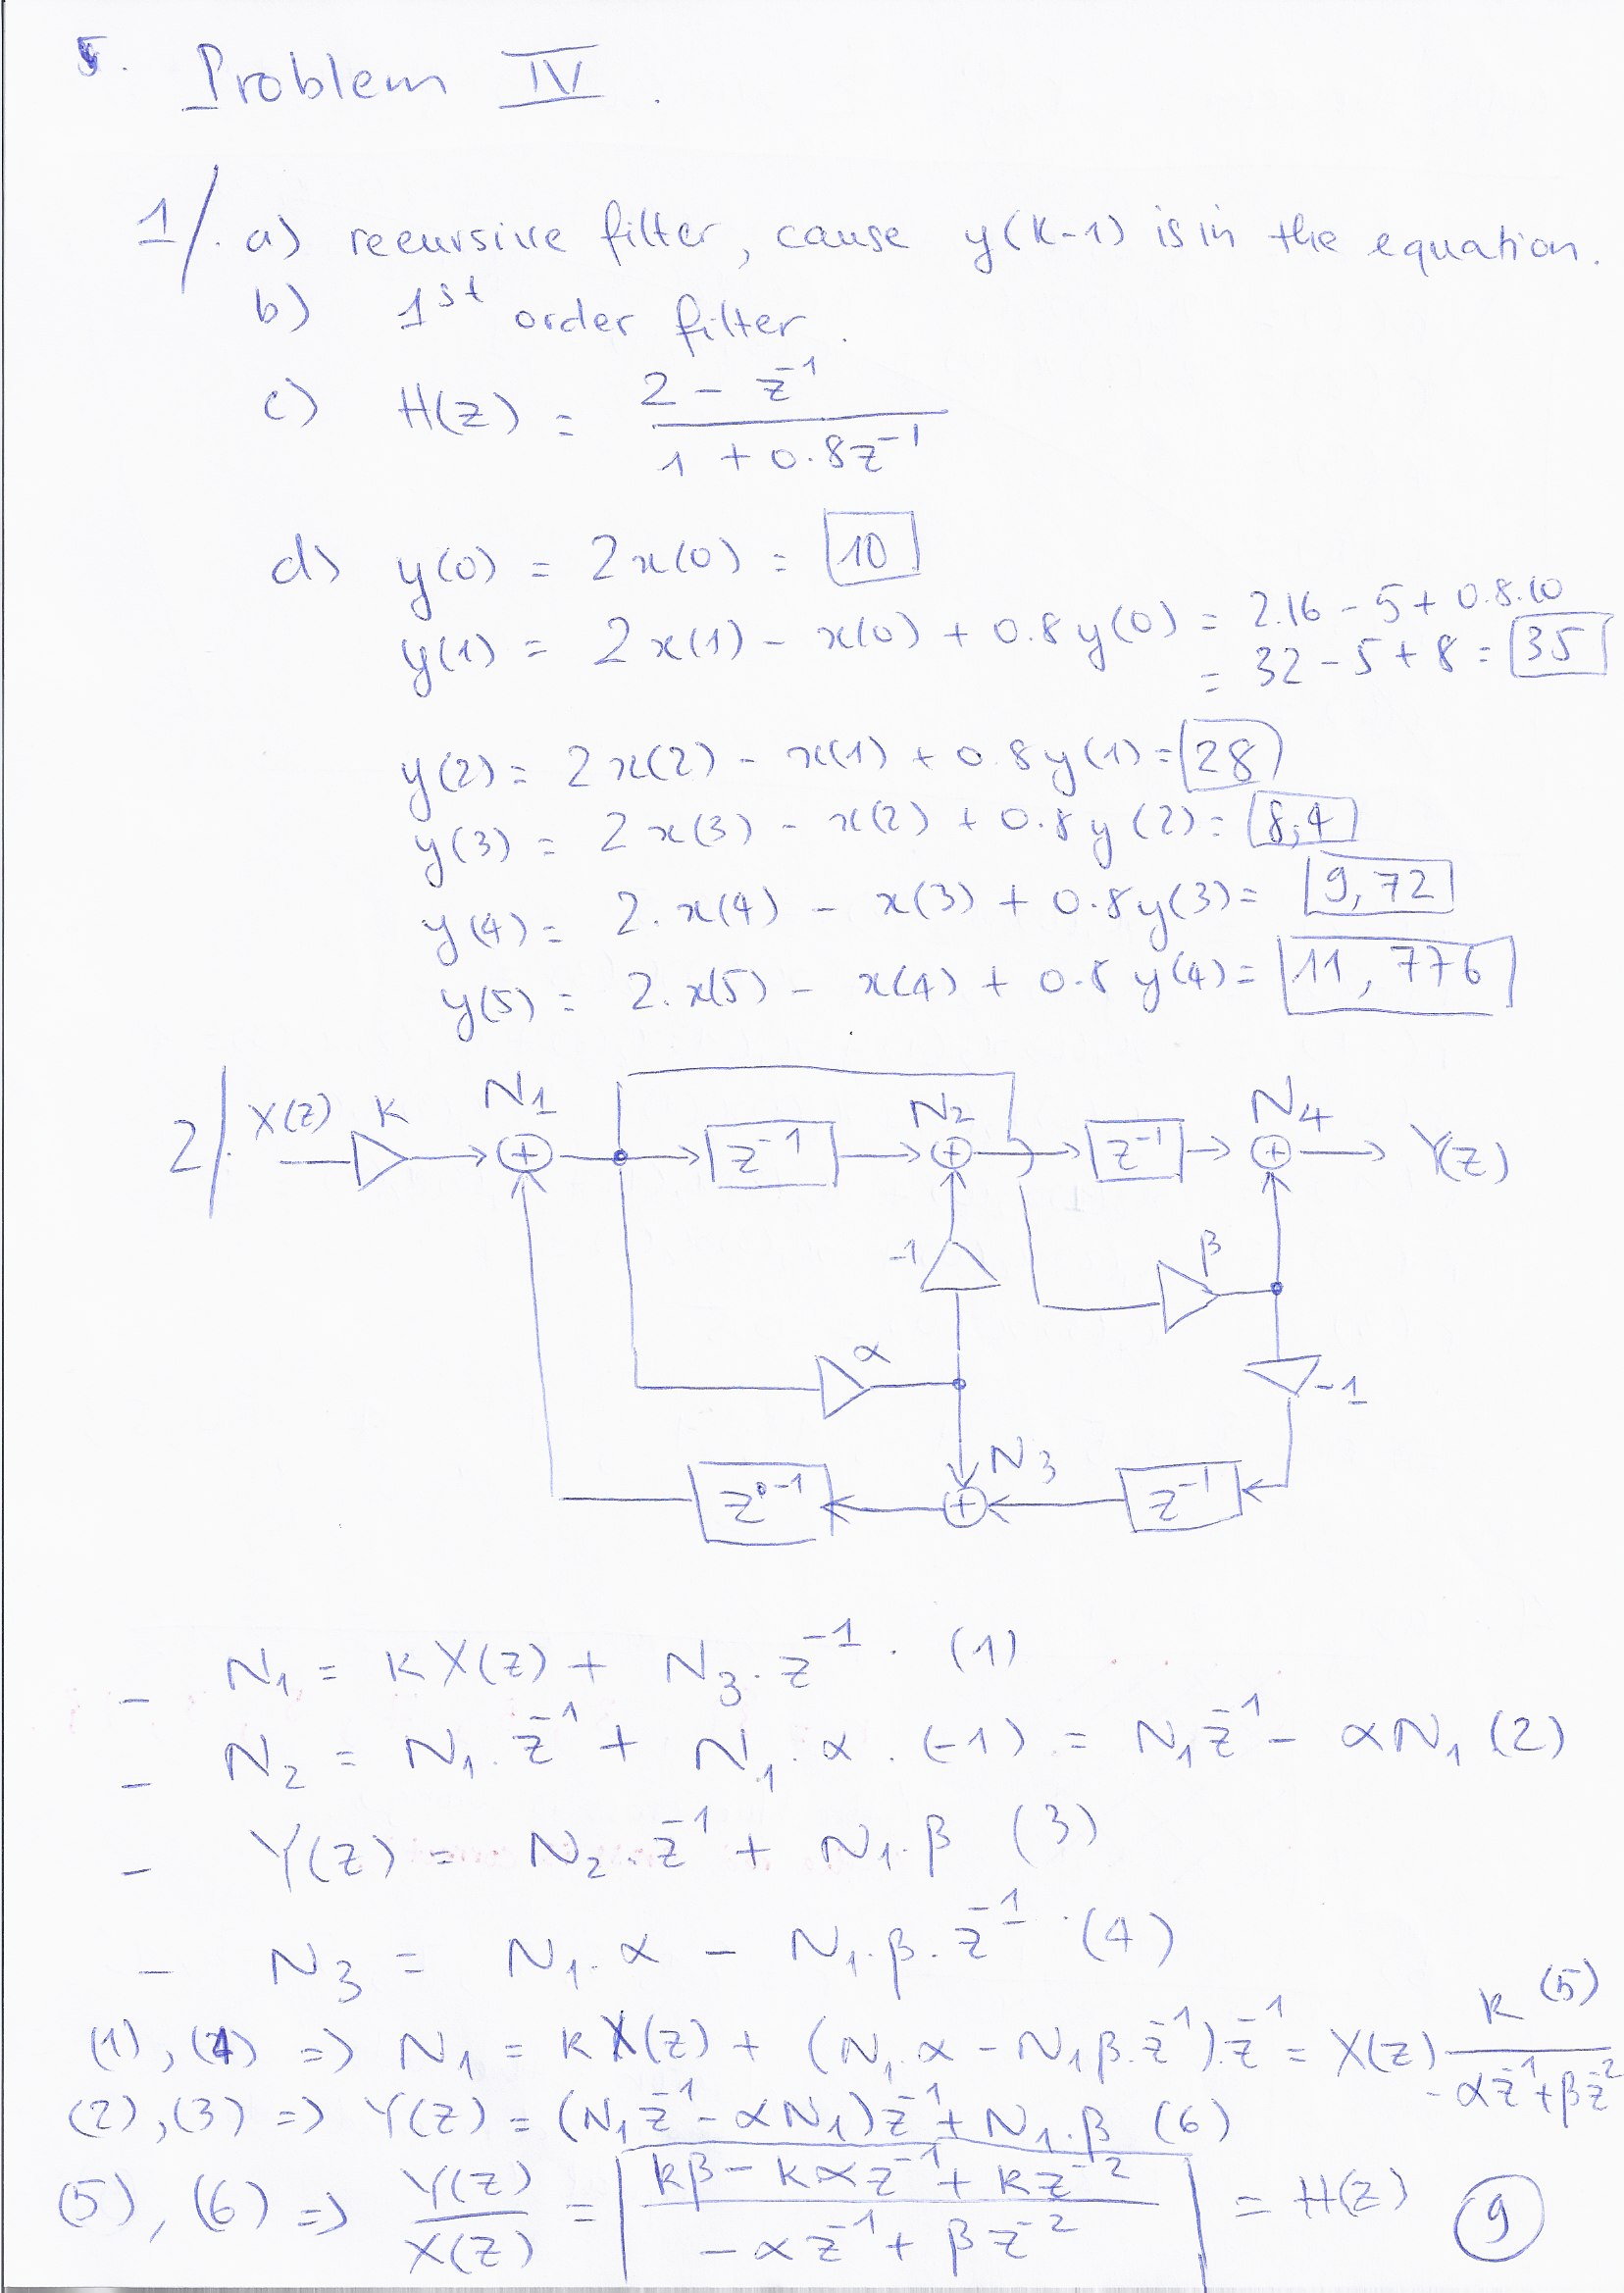 5. Problem IV.
1/. a) recursive filter, cause y(k-1) is in the equation.
b) 1st order filter.
c) H(z) = (2 - z^-1) / (1 + 0.8z^-1)
d) y(0) = 2x(0) = 10
y(1) = 2x(1) - x(0) + 0.8y(0) = 2.16 - 5 + 0.8.10
= 32 - 5 + 8 = 35
y(2) = 2x(2) - x(1) + 0.8y(1) = 28
y(3) = 2x(3) - x(2) + 0.8y(2) = 8,4
y(4) = 2.x(4) - x(3) + 0.8y(3) = 9,72
y(5) = 2.x(5) - x(4) + 0.8y(4) = 11,776
2/. X(z) K N1 + z^-1 N2 + z^-1 N4 + Y(z)
-1 β
α -1
z^-1 + N3 z^-1
- N1 = K X(z) + N3.z^-1. (1)
- N2 = N1.z^-1 + N1.α.(-1) = N1z^-1 - αN1 (2)
- Y(z) = N2.z^-1 + N1.β (3)
- N3 = N1.α - N1.β.z^-1 (4)
(1), (4) => N1 = KX(z) + (N1.α - N1β.z^-1).z^-1 = X(z) K / (-αz^-1 + βz^-2) (5)
(2), (3) => Y(z) = (N1z^-1 - αN1)z^-1 + N1.β (6)
(5), (6) => Y(z)/X(z) = (Kβ - Kαz^-1 + Kz^-2) / (-αz^-1 + βz^-2) = H(z) 9